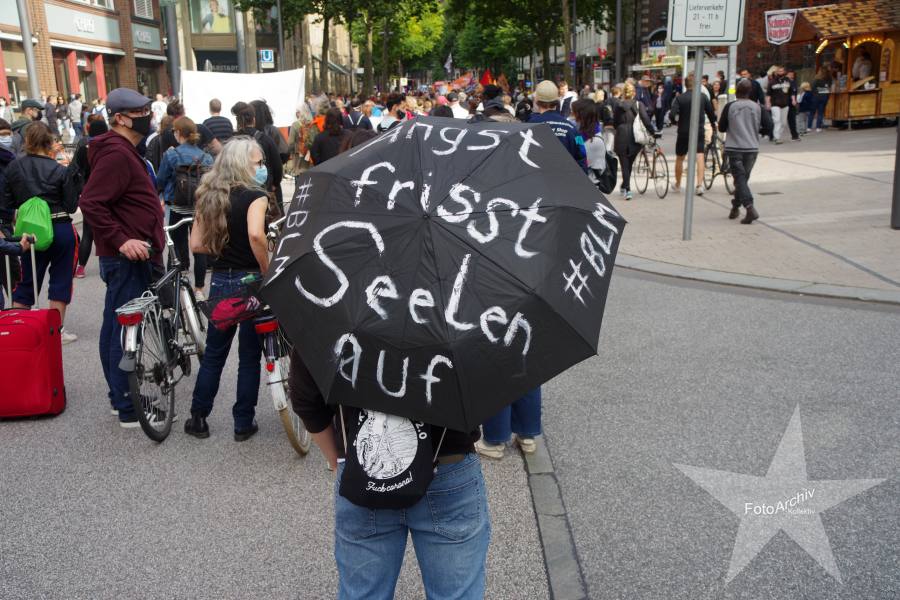 Lieferverkehr
21 - 11 h
frei
Schmalz
kuchen
U
Angst
frisst
Seelen
auf
#BLM
#BLM
Fuck corona!
FotoArchiv
Kollektiv